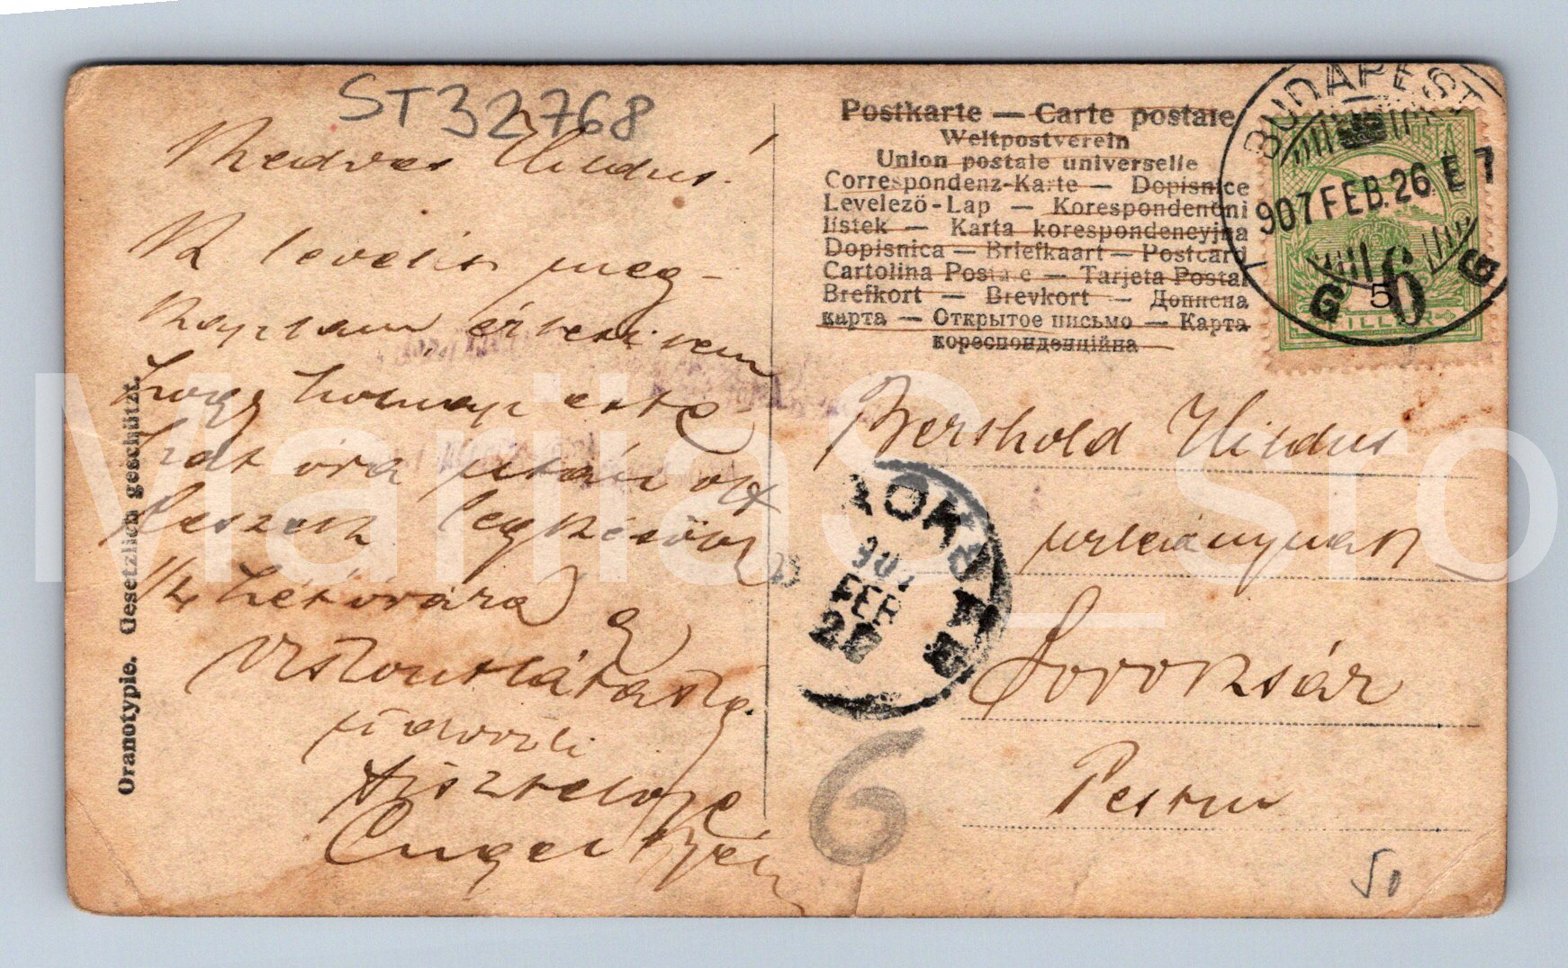 ST32768
Kedves
K levelét meg-
kaptam értesítem
hogy holnap este
hat óra után ott
leszek legkésőbb
viszontlátásig
üdvözli
tisztelője
Oranotypie. Gesetzlich geschützt.
Postkarte — Carte postale
Weltpostverein
Union postale universelle
Correspondenz-Karte — Dopisnice
Levelező-Lap — Korespondenční
lístek — Karta korespondencyjna
Dopisnica — Briefkaart — Postcard
Cartolina Postale — Tarjeta Postal
Brefkort — Brevkort — Дописна
карта — Открытое письмо — Карта
кореспонденційна
BUDAPEST
907 FEB. 26. E 7
G 6 G
5
FILLÉR
Berthold
urleánynak
Soroksár
Pestm
FEB
6
50
MariiaS_sro